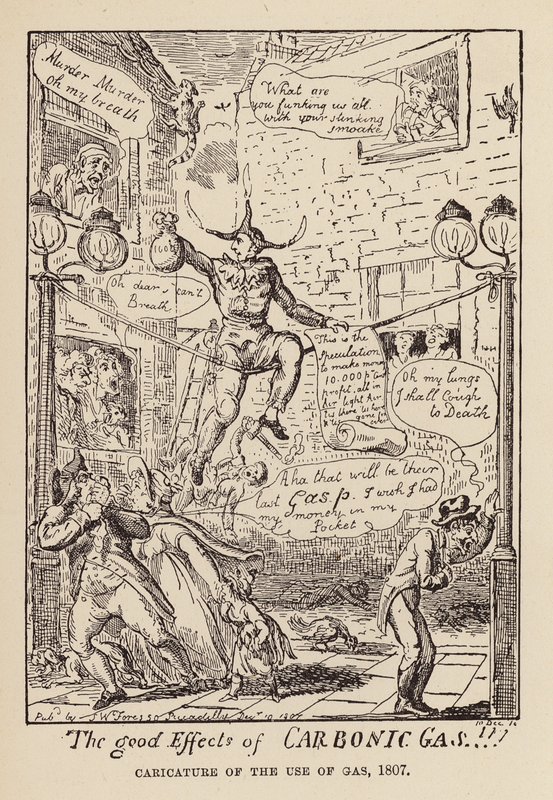 Murder Murder
oh my breath
What are
you funking us all
with your stinking
smoake
Oh dear I can't
Breath
This is the
Speculation
to make money
10.000 p Cent
profit all in
Air light Air
Oh my lungs
I shall Cough
to Death
Aha that will be their
last Gasp. I wish I had
my money in my
Pocket
Pubd by S W Fores 50 Piccadilly Decr 10 1807
10 Dec.
The good Effects of CARBONIC GAS...!!!
CARICATURE OF THE USE OF GAS, 1807.